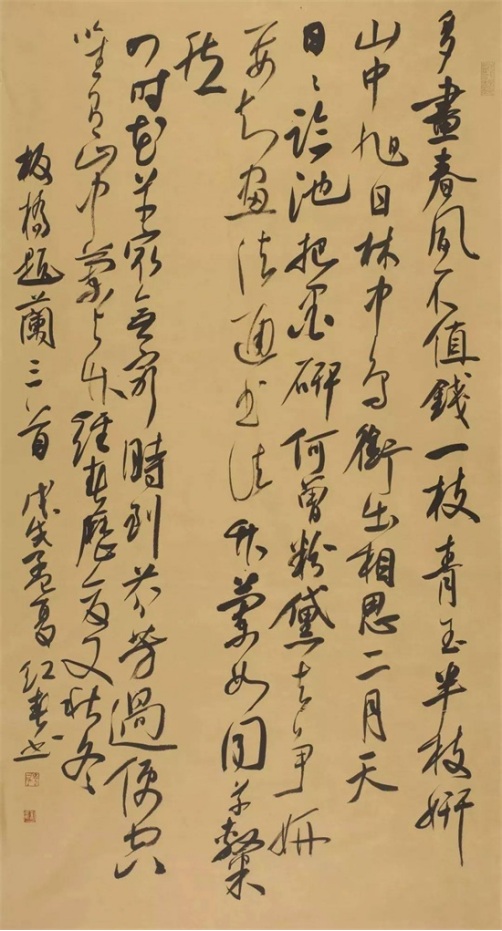 多畫春風不值錢一枝青玉半枝妍
山中旭日林中鳥銜出相思二月天
日日臨池把墨研何曾粉黛去爭妍
要知畫法通書法竹蘭如同草隸
然
四時花草最無窮時到芬芳過便空
唯有山中蘭與竹經春歷夏又秋冬
板橋題蘭三首 戊戌孟夏 紅春書